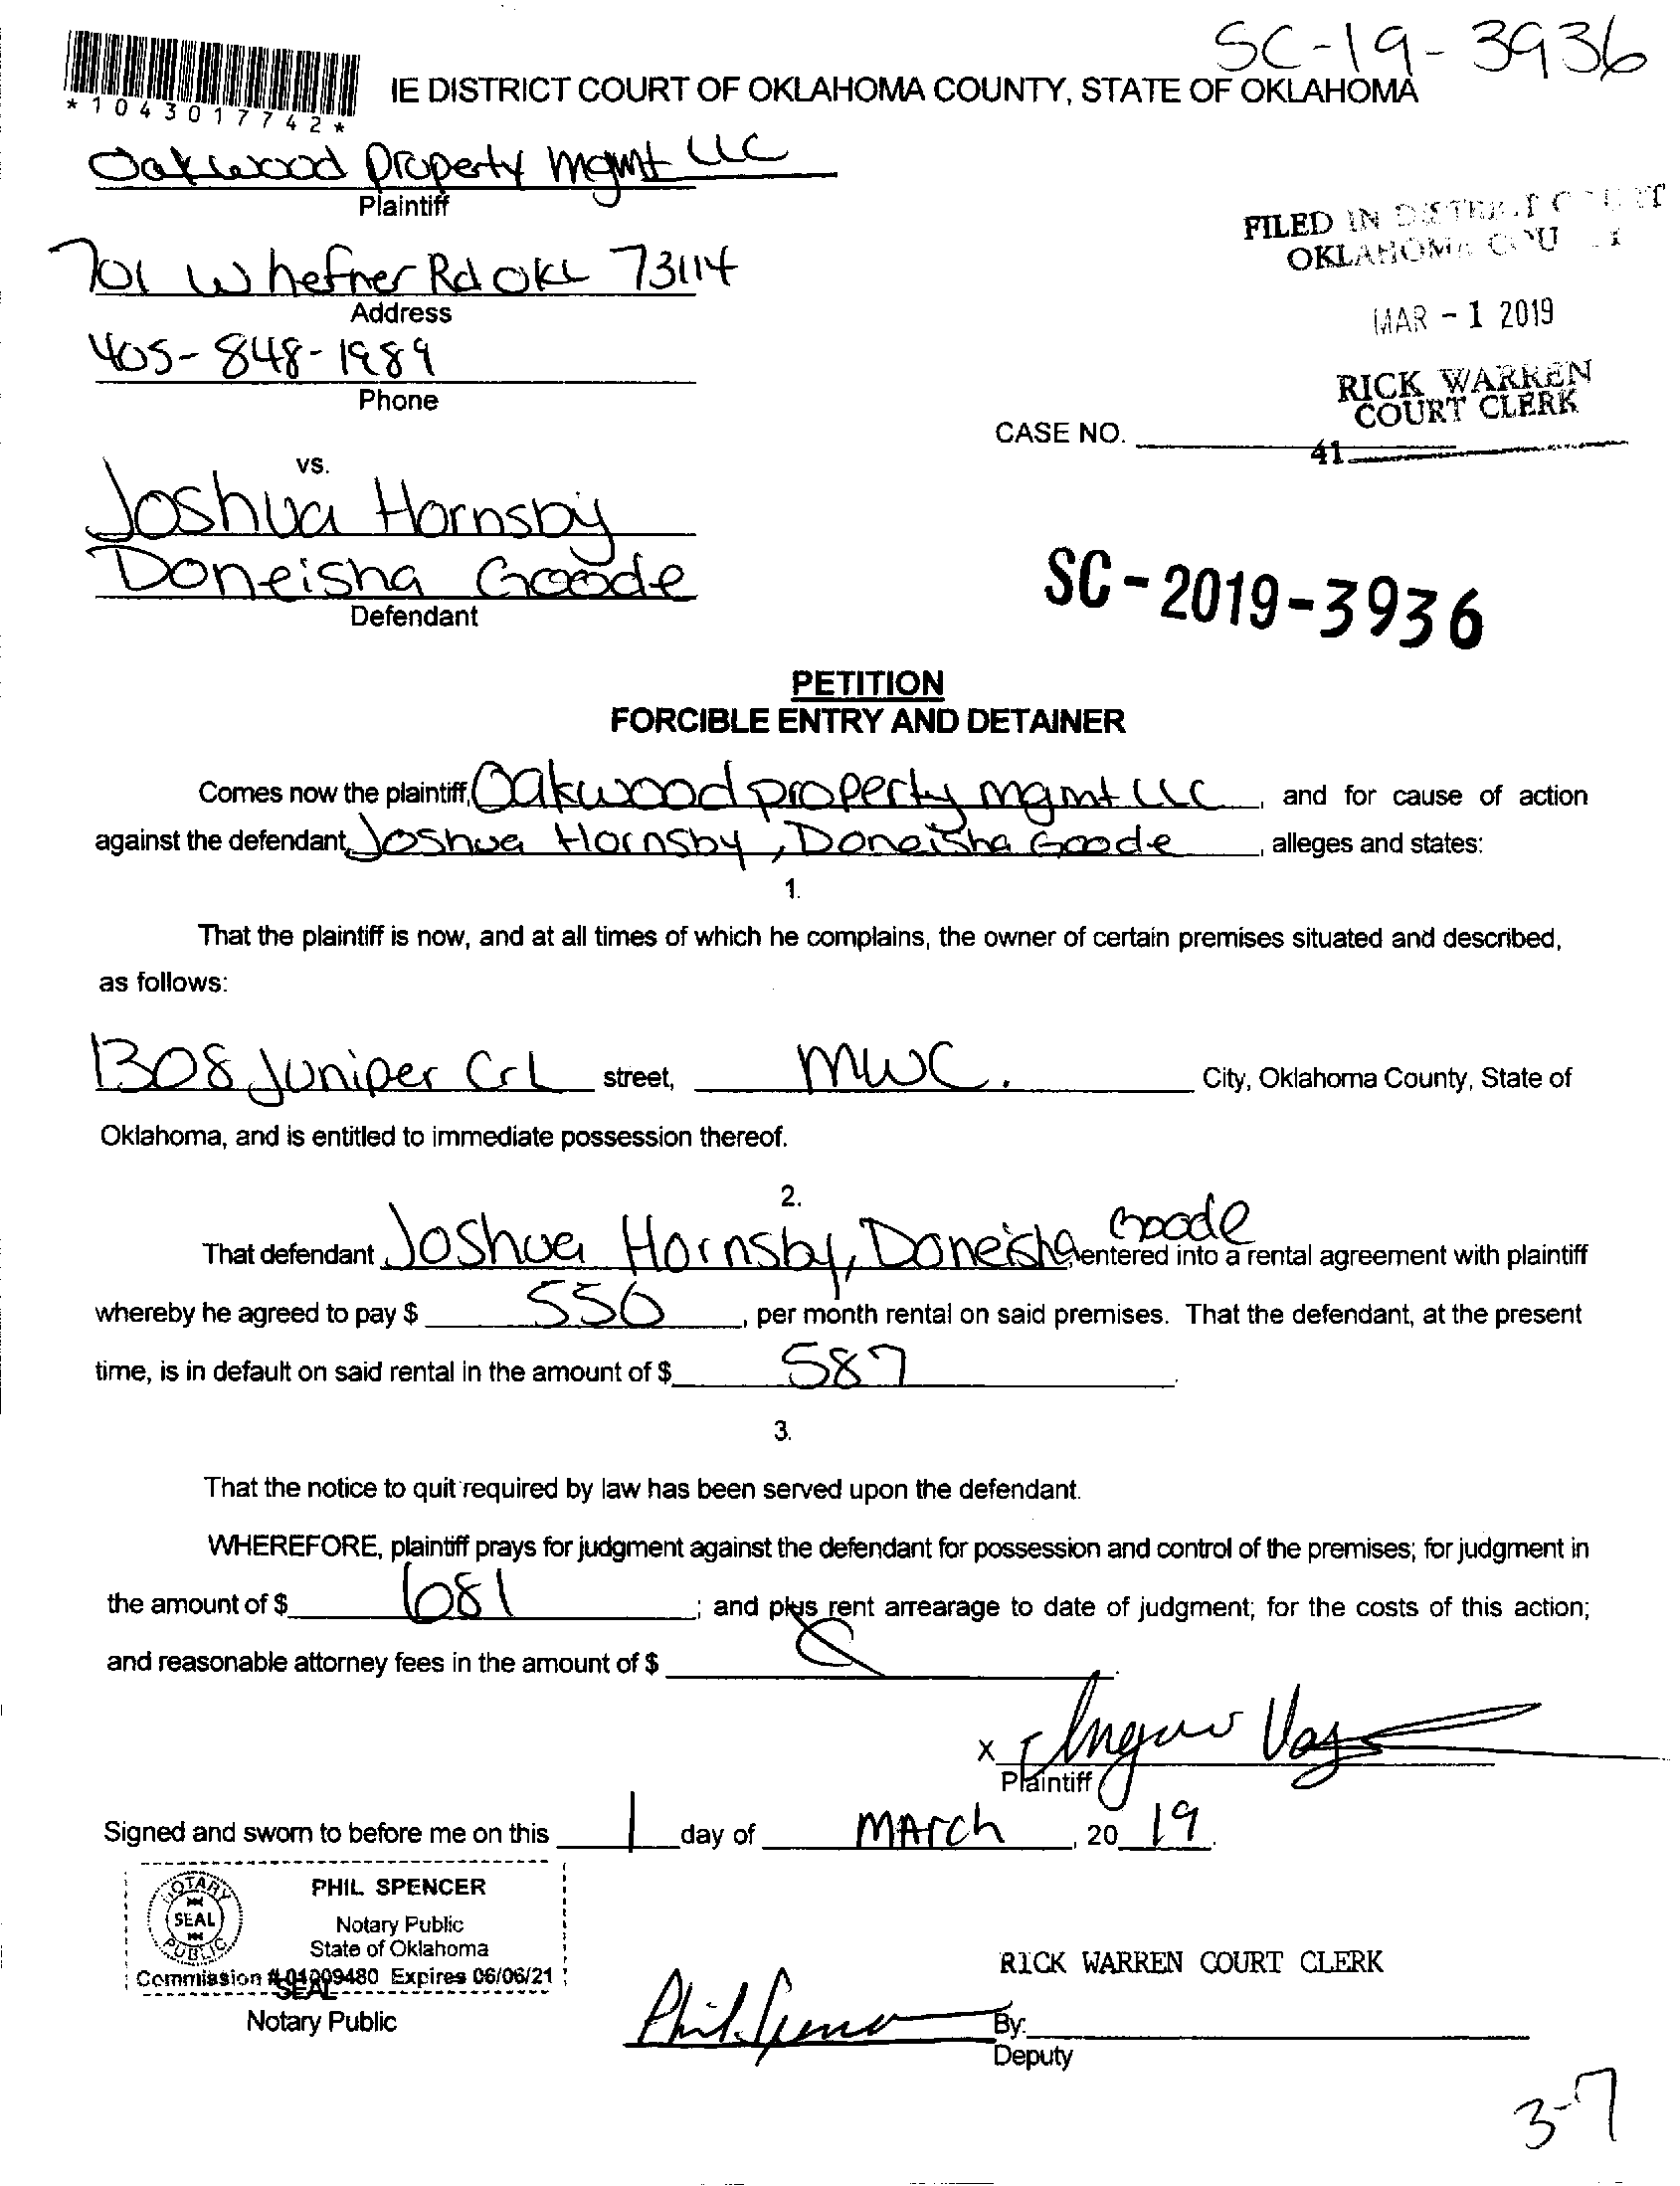 SC-19-3936
*1043017742*
IE DISTRICT COURT OF OKLAHOMA COUNTY, STATE OF OKLAHOMA
Oakwood Property Mgmt LLC
Plaintiff
701 W hefner Rd OKC 73114
Address
405-848-1989
Phone
FILED IN DISTRICT COURT
OKLAHOMA COU
MAR - 1 2019
RICK WARREN
COURT CLERK
CASE NO.
41
vs.
Joshua Hornsby
Doneisha Goode
Defendant
SC-2019-3936
PETITION
FORCIBLE ENTRY AND DETAINER
Comes now the plaintiff, Oakwood property mgmt LLC, and for cause of action
against the defendant, Joshua Hornsby, Doneisha Goode, alleges and states:
1.
That the plaintiff is now, and at all times of which he complains, the owner of certain premises situated and described,
as follows:
1308 Juniper CrL street, MWC. City, Oklahoma County, State of
Oklahoma, and is entitled to immediate possession thereof.
2.
That defendant Joshua Hornsby, Doneisha Goode entered into a rental agreement with plaintiff
whereby he agreed to pay $ 550, per month rental on said premises. That the defendant, at the present
time, is in default on said rental in the amount of $ 587.
3.
That the notice to quit required by law has been served upon the defendant.
WHEREFORE, plaintiff prays for judgment against the defendant for possession and control of the premises; for judgment in
the amount of $ 681; and plus rent arrearage to date of judgment; for the costs of this action;
and reasonable attorney fees in the amount of $
X
Plaintiff
Signed and sworn to before me on this 1 day of MArch, 20 19.
NOTARY PUBLIC SEAL
PHIL SPENCER
Notary Public
State of Oklahoma
Commission #01009480 Expires 06/06/21
SEAL
Notary Public
RICK WARREN COURT CLERK
Phil Spencer
By:
Deputy
3-7